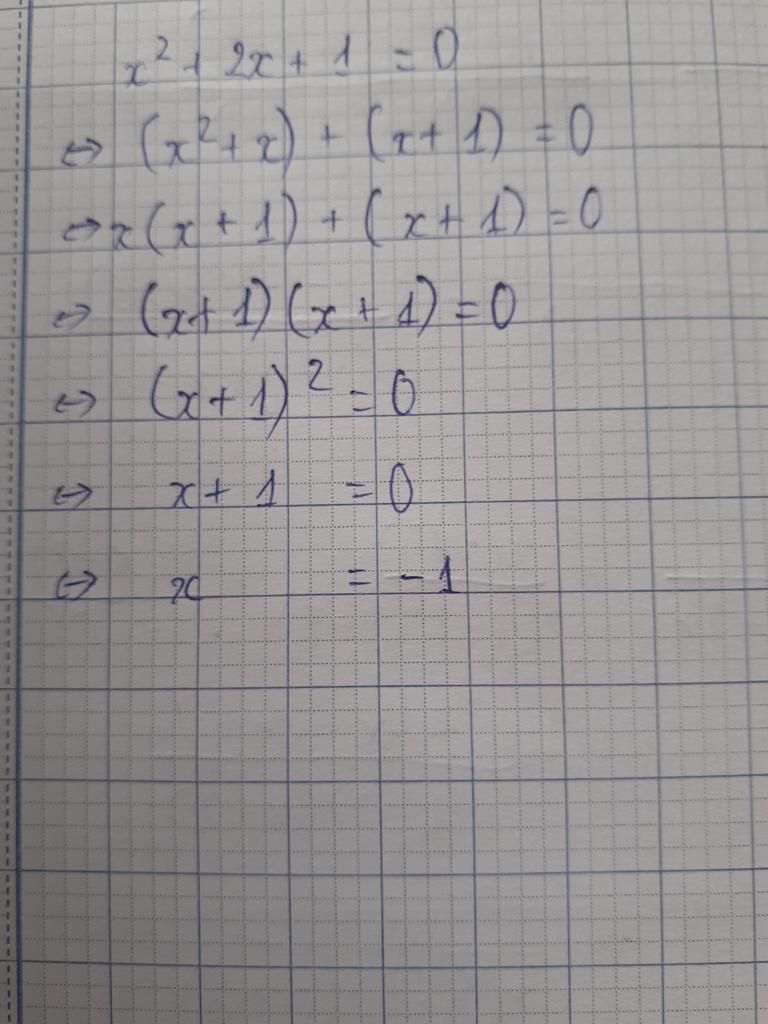 x² + 2x + 1 = 0
⇔ (x² + x) + (x + 1) = 0
⇔ x(x + 1) + (x + 1) = 0
⇔ (x + 1)(x + 1) = 0
⇔ (x + 1)² = 0
⇔ x + 1 = 0
⇔ x = -1